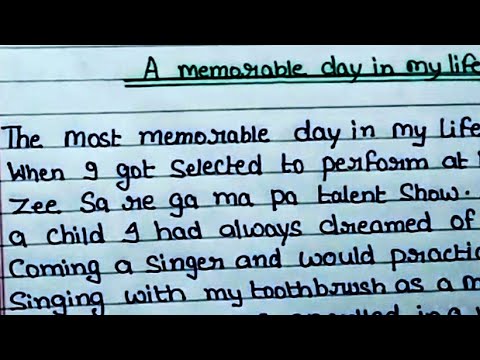 A memorable day in my life
The most memorable day in my life
When I got selected to perform at
Zee Sa re ga ma pa talent Show.
a child I had always dreamed of
Coming a singer and would practic
Singing with my toothbrush as a m
in a